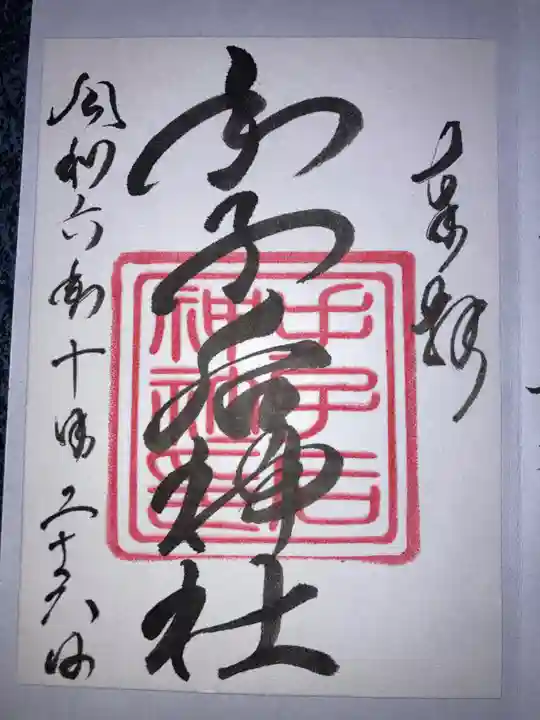 奉拝
手子后神社
令和六年十月二十六日
手子后
神社